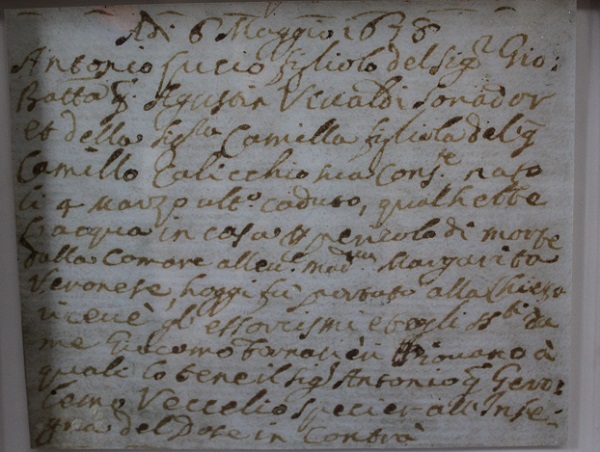 Adi 6 Maggio 1678
Antonio Lucio figliolo del Sig.r Gio:
Batta q. Agustin Vivaldi Sonador
et della Sig.ra Camilla figliola del q.
Camillo Calicchio sua Cons.te nato
li 4 Marzo ult.o caduto, qual hebbe
l'acqua in casa p pericolo di morte
dalla Comare alleu.e mad.na Margarita
Veronese, hoggi fù portato alla Chiesa
riceuè gl'essorcismi et ogli S.ti da
me Giacomo Fornacieri Piouano à
quali lo tene il Sig.r Antonio q. Gero:
lemo Veccelio specier all'Inse:
gna del Dose in Contrà